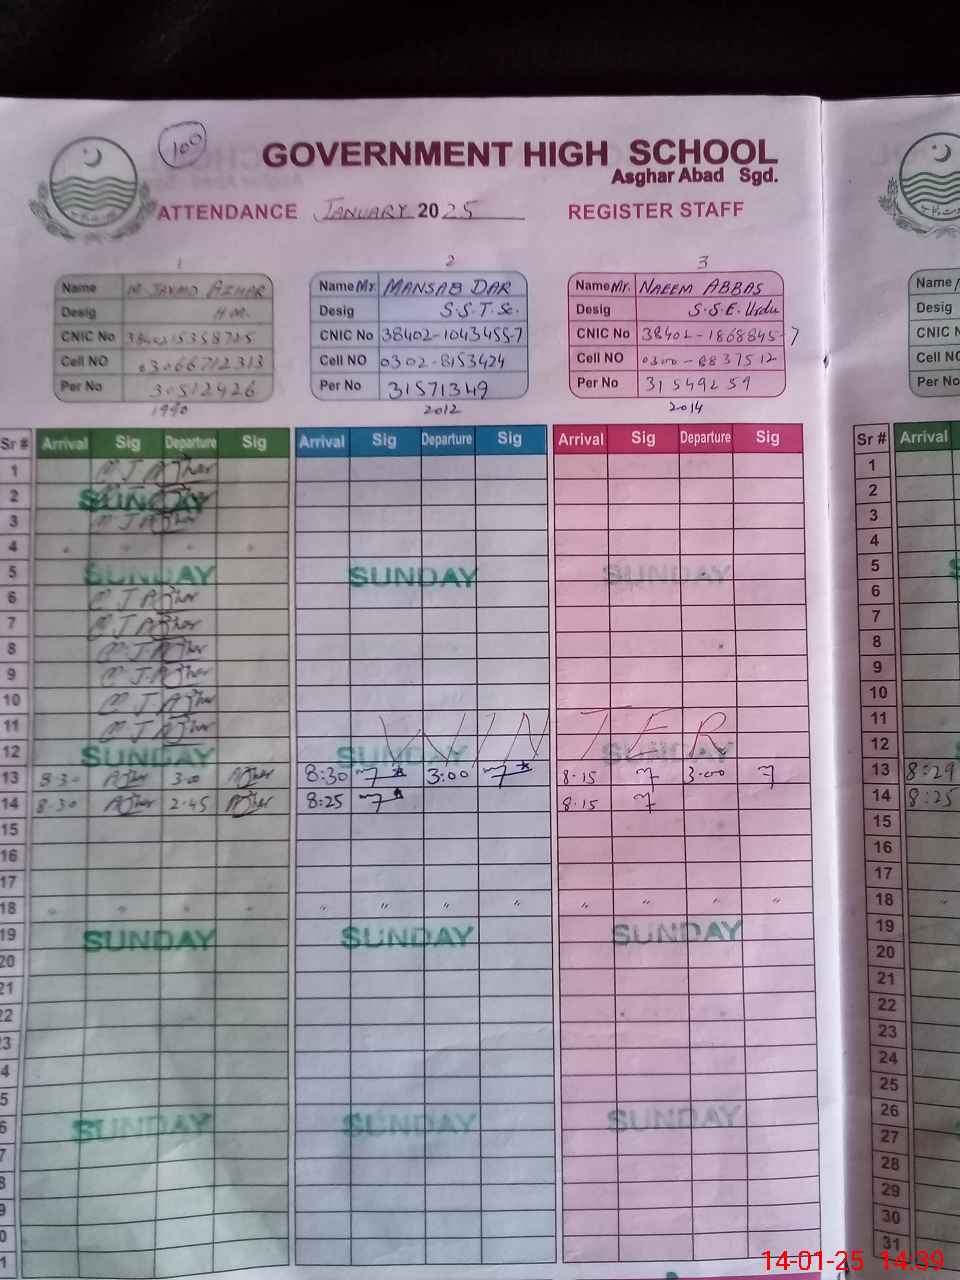 100
GOVERNMENT HIGH SCHOOL
Asghar Abad Sgd.
ATTENDANCE JANUARY 2025 REGISTER STAFF
1 2 3
Name M. JAVAID AZHAR
Desig H.M.
CNIC No
Cell NO 03066712313
Per No 30512426
1990
Name Mr. MANSAB DAR
Desig S.S.T. Sc.
CNIC No 38402-1043455-7
Cell NO 0302-8153424
Per No 31571349
2012
Name Mr. NAEEM ABBAS
Desig S.S.E. Urdu
CNIC No 38401-1868845-7
Cell NO 0300-8837512
Per No 31549259
2014
Name
Desig
CNIC N
Cell NO
Per No
Sr # Arrival Sig Departure Sig Arrival Sig Departure Sig Arrival Sig Departure Sig Sr # Arrival
1 M J Azher 1
2 SUNDAY 2
3 M J Azher 3
4 " " " " 4
5 SUNDAY SUNDAY SUNDAY 5
6 M J Azher 6
7 M J Azher 7
8 M J Azher 8
9 M J Azher 9
10 M J Azher 10
11 M J Azher WINTER 11
12 SUNDAY SUNDAY SUNDAY 12
13 8:30 Azher 3:00 Azher 8:30 3:00 8:15 3:00 13 8:29
14 8:30 Azher 2:45 Azher 8:25 8:15 14 8:25
15 15
16 16
17 17
18 " " " " " " " " " " " " 18 "
19 SUNDAY SUNDAY SUNDAY 19
20 20
21 21
22 22
3 23
4 24
5 25
6 SUNDAY SUNDAY SUNDAY 26
7 27
8 28
9 29
0 30
1 31
14-01-25 14:39